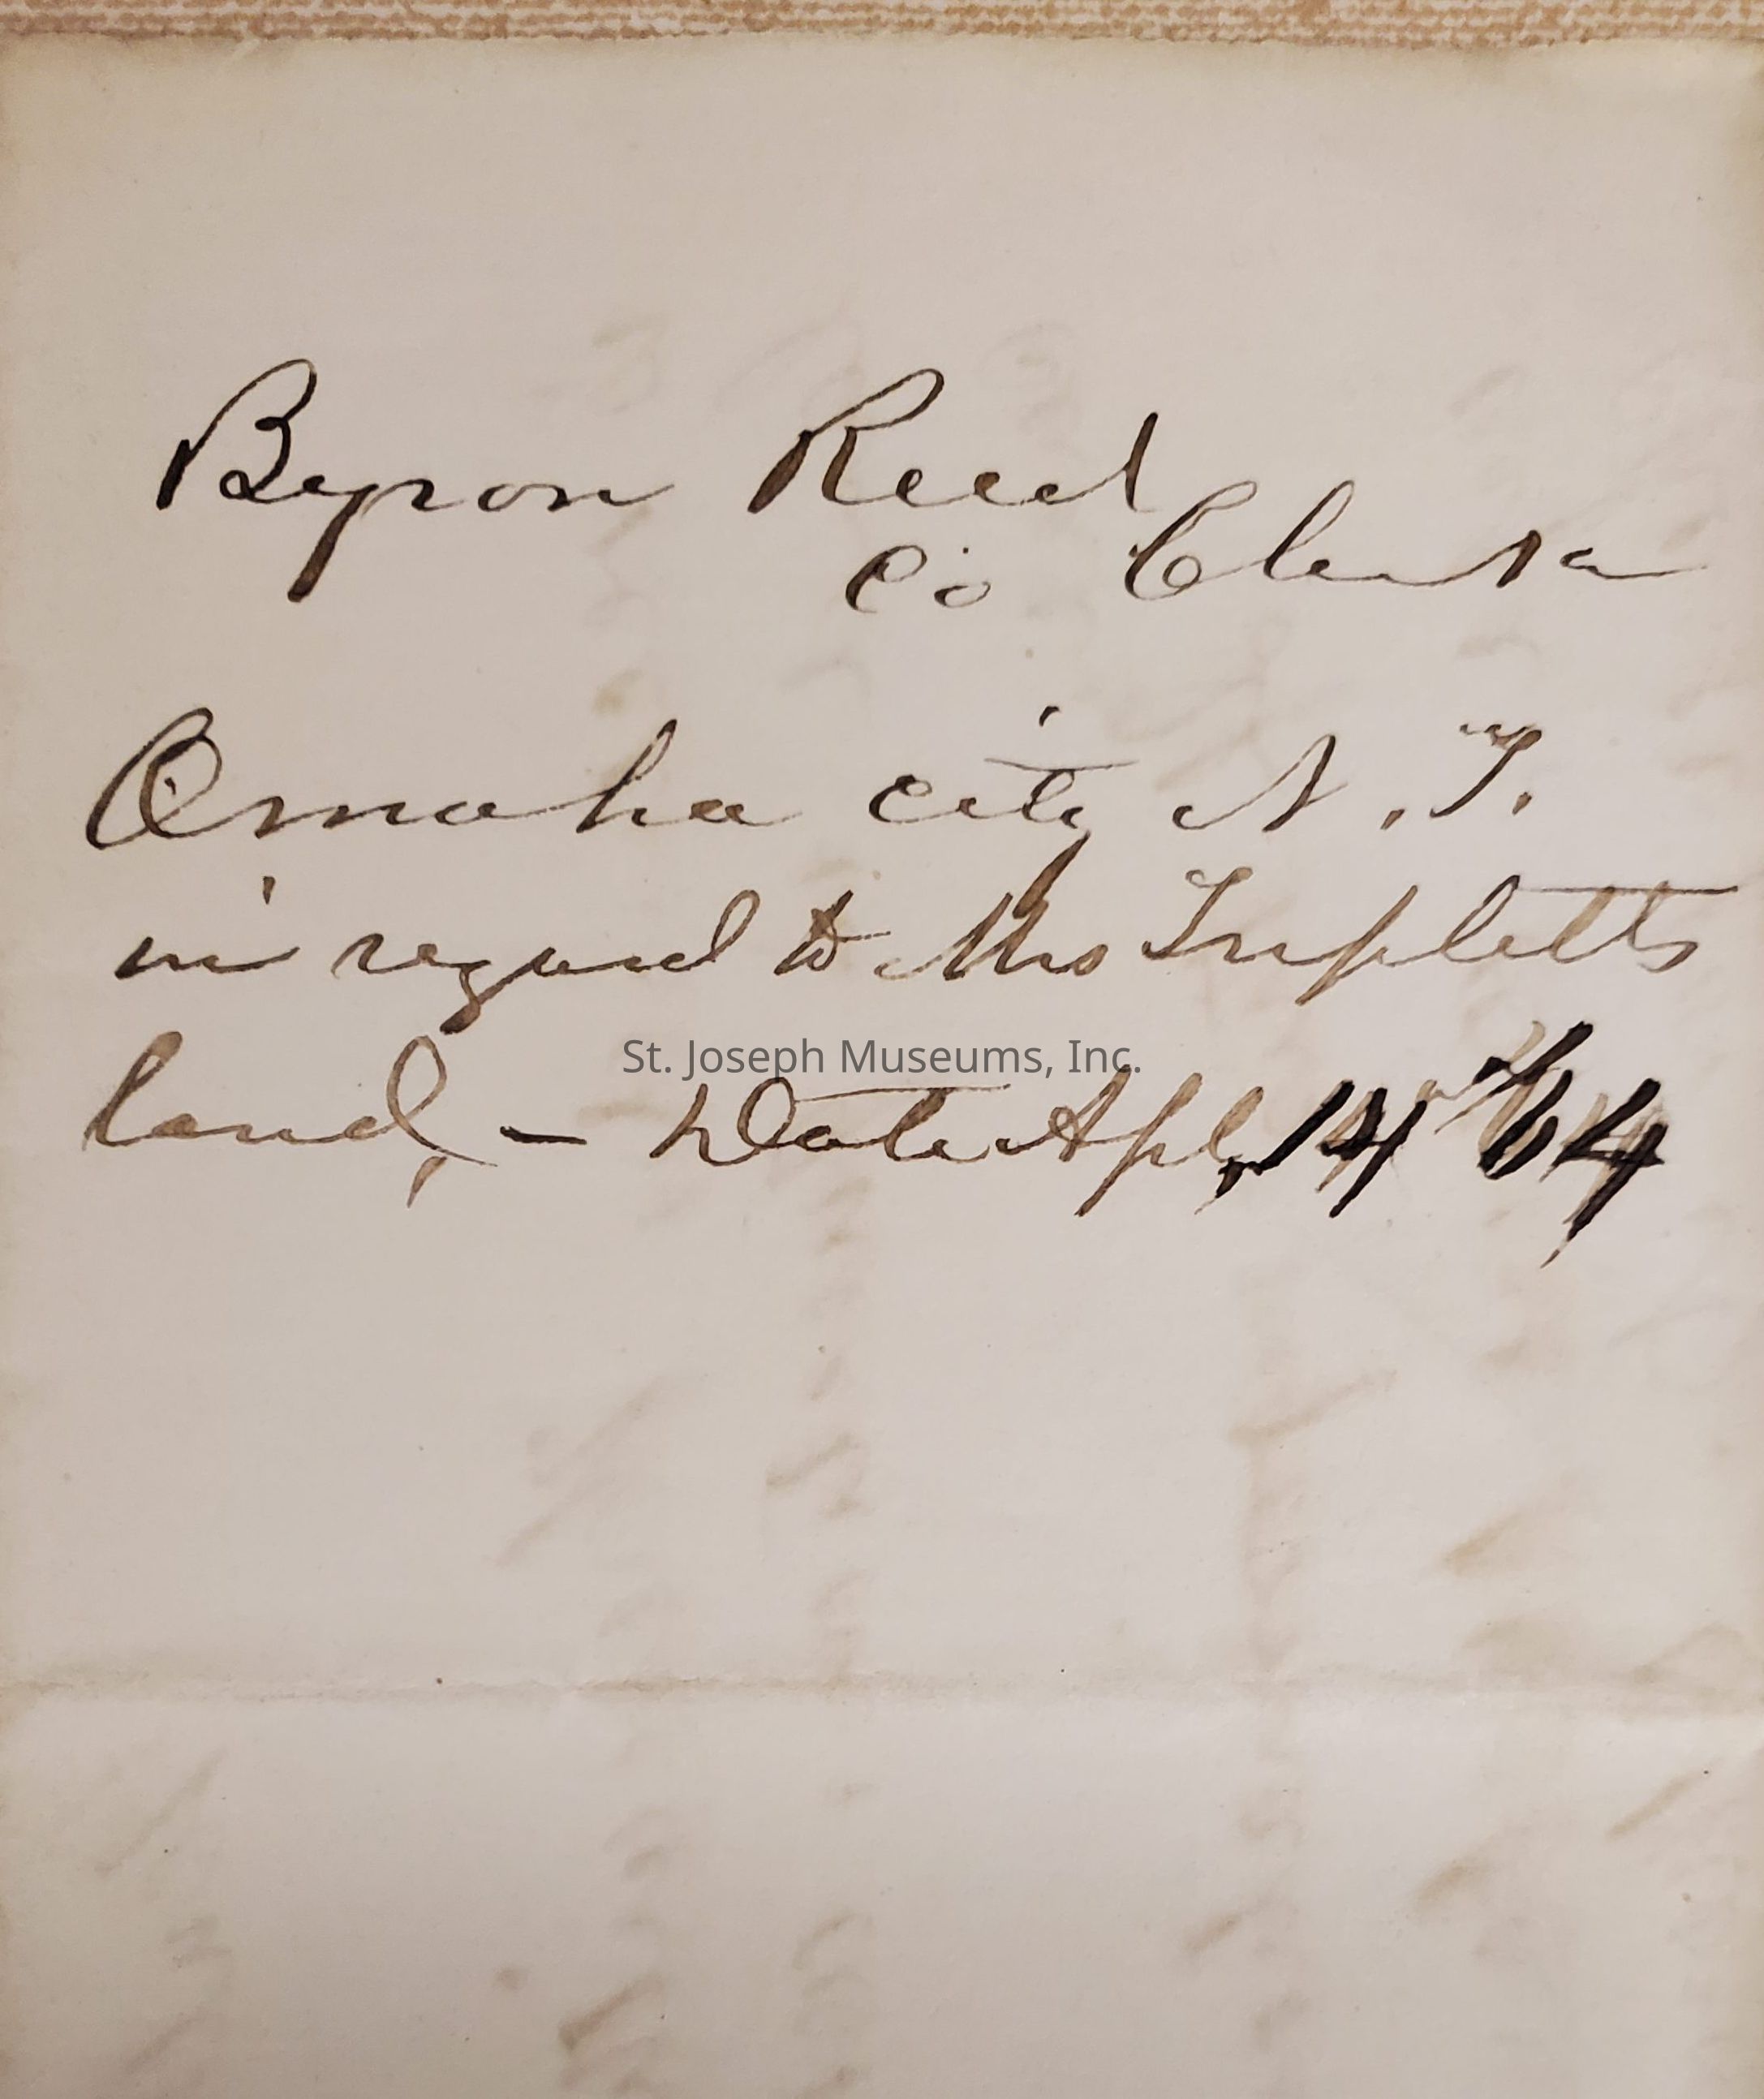 Byron Reed
Co Clerk
Omaha city N.T.
in regard to Mrs Tripletts
land, - Date Apl, 14th/64
St. Joseph Museums, Inc.